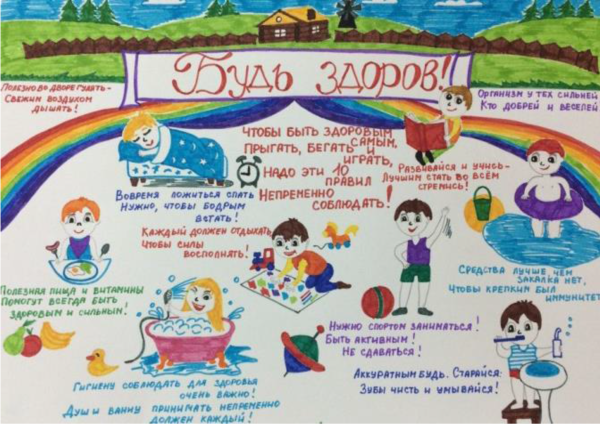 Будь здоров!
Полезно во дворе гулять-
Свежим воздухом
дышать!
Организм у тех сильней
Кто добрей и веселей
Чтобы быть здоровым
самым,
Прыгать, бегать и
играть,
Надо эти 10
правил
Непременно
соблюдать!
Развивайся и учись-
Лучшим стать во всём
стремись!
Вовремя ложиться спать
Нужно, чтобы бодрым
встать!
Каждый должен отдыхать
Чтобы силы
восполнять!
Средства лучше, чем
закалка нет,
Чтобы крепким был
иммунитет
Полезная пища и витамины
Помогут всегда быть
здоровым и сильным!
Нужно спортом заниматься!
Быть активным!
Не сдаваться!
Гигиену соблюдать для здоровья
очень важно!
Душ и ванну принимать непременно
должен каждый!
Аккуратным будь. Старайся:
Зубы чисть и умывайся!